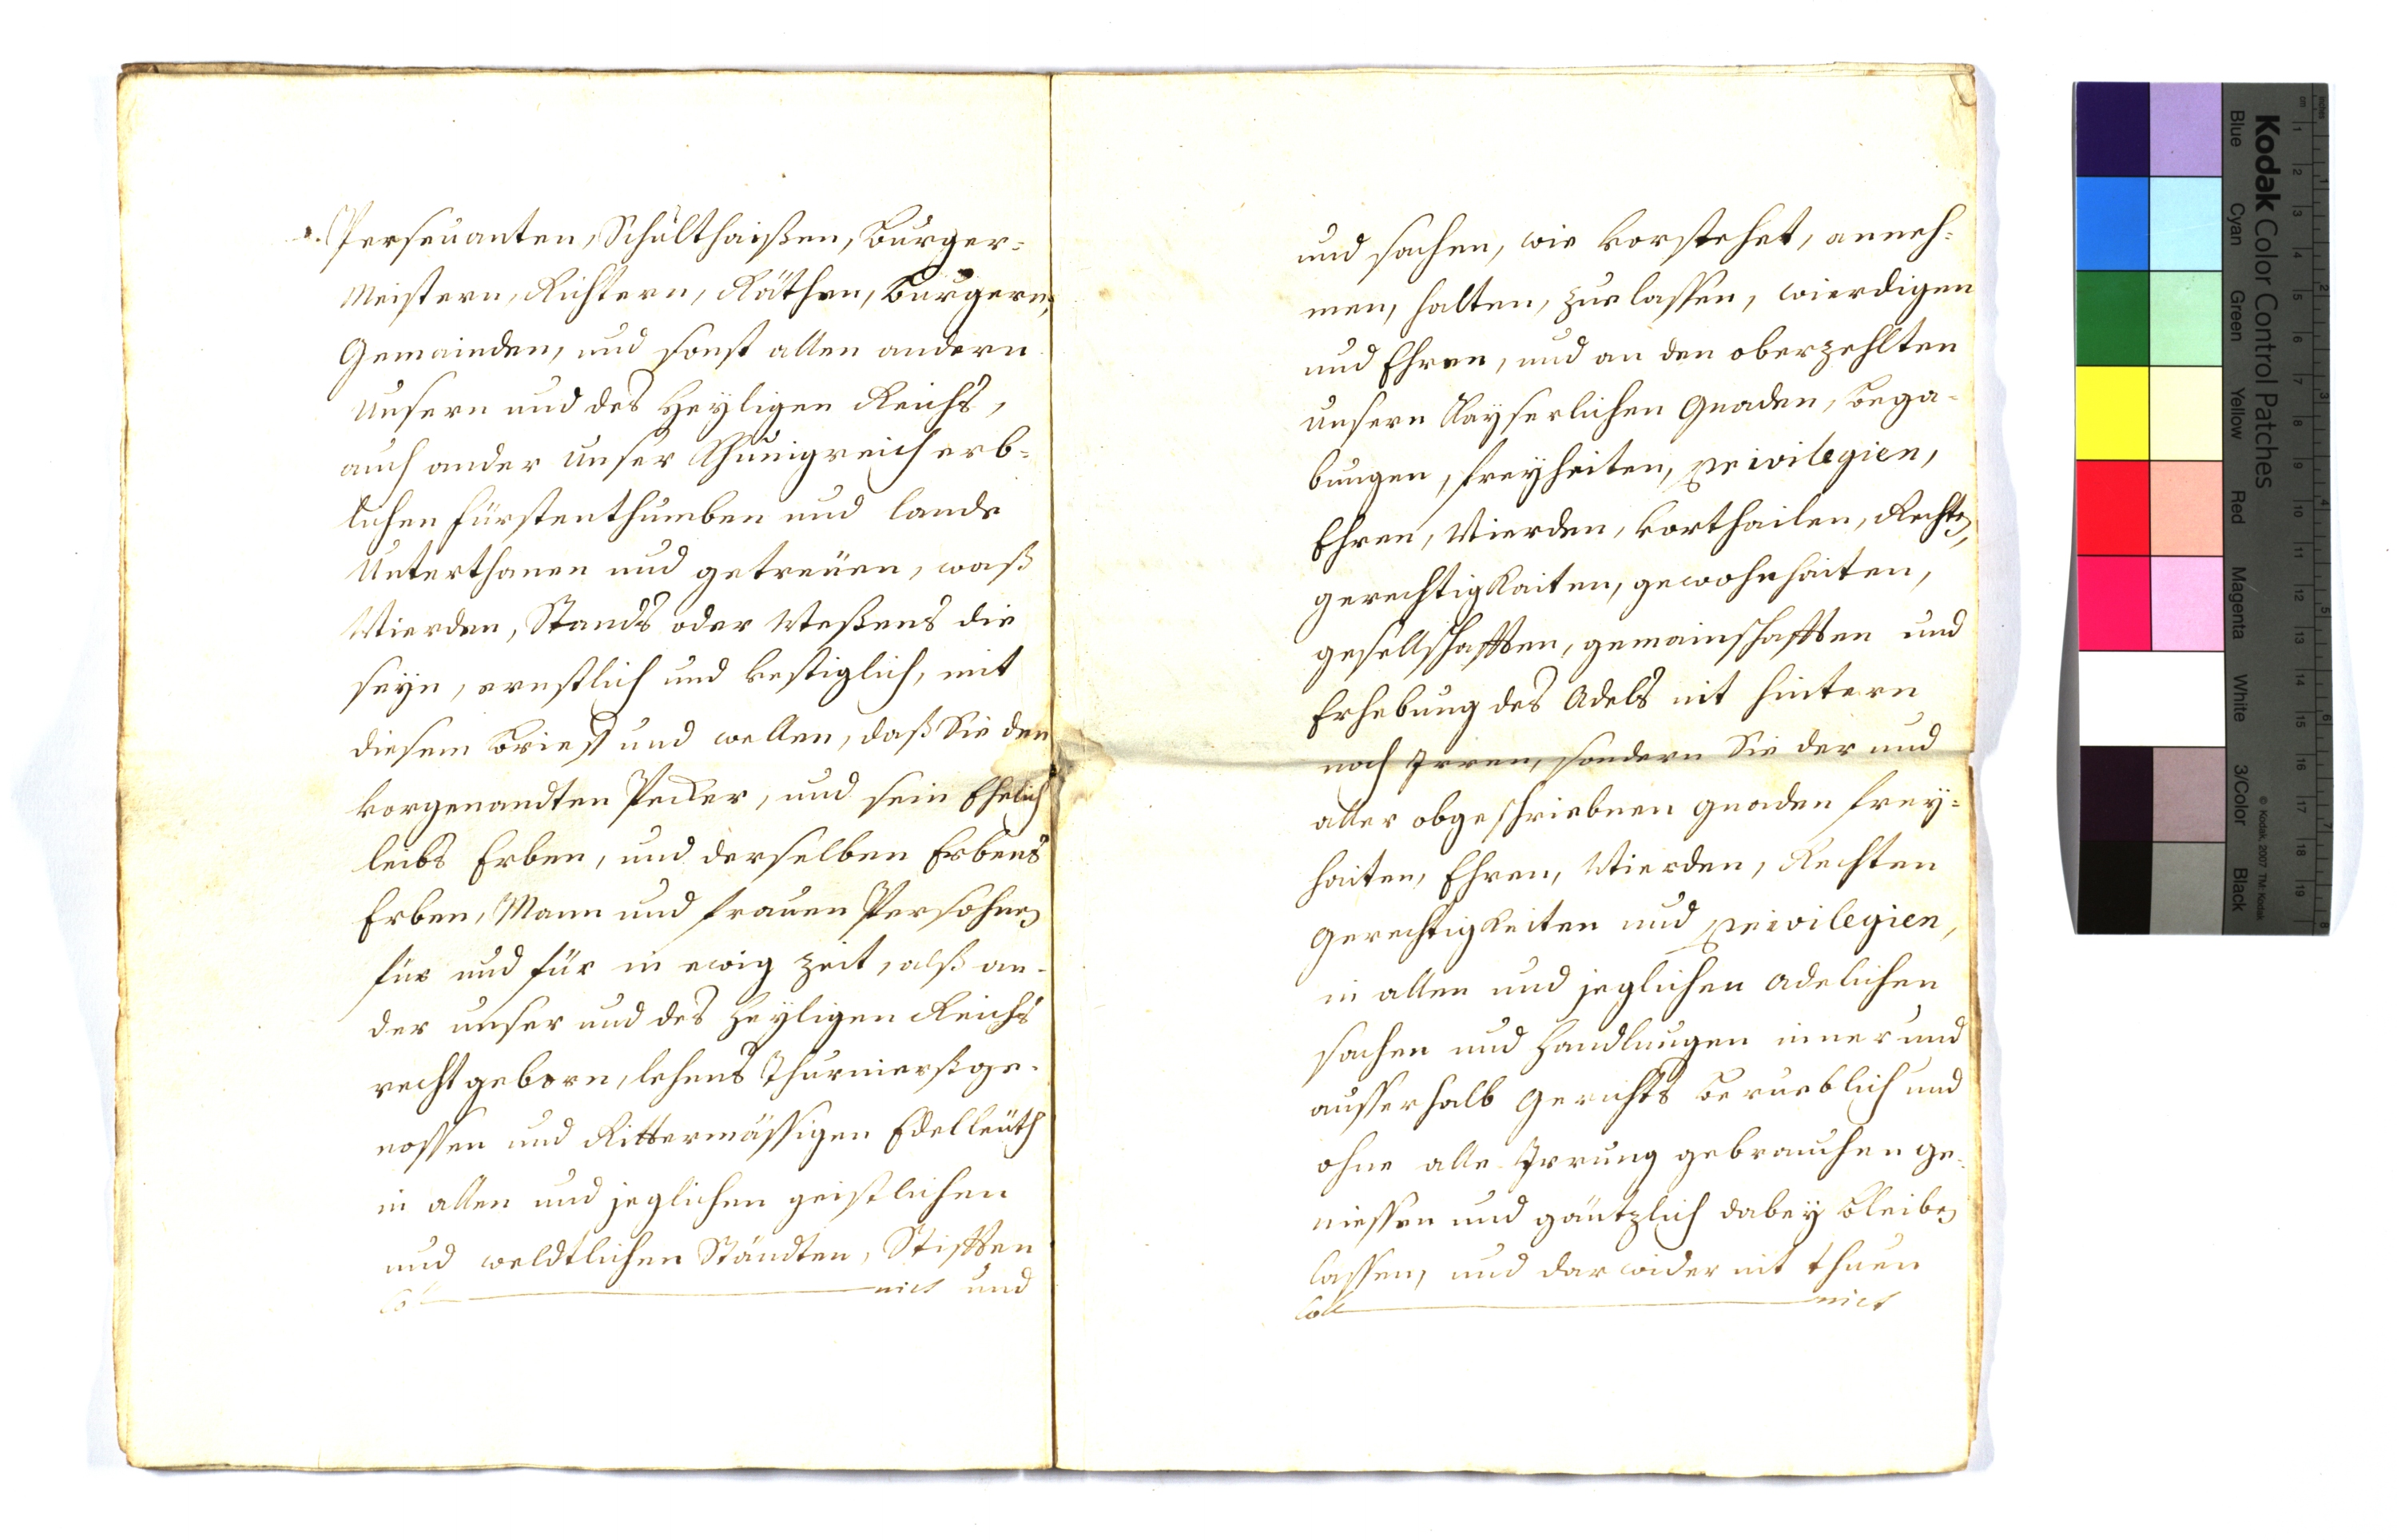 Persevanten, Schulthaißen, Burger=
Meistern, Richtern, Räthen, Burgern,
Gemainden, und sonst allen andern
Unsern und des Heyligen Reichs,
auch ander Unser Khünigreich erb=
lichen Fürstenthumben und lande
Unterthanen und getreüen, waß
Wierden, Stands oder Weßens die
seyn, ernstlich und vestiglich, mit
diesem Brieff und wellen, daß Sie den
vorgenandten, und sein Ehelich
leibs Erben, und derselben Erbens
Erben, Mann und frauen Persohnen
für und für in ewig zeit, alß an=
der unser und des Heyligen Reichs
recht geborn, lehens Thurniersge=
nossen und Rittermässigen Edelleüth
in allen und jeglichen geistlichen
und weldtlichen Ständten, Stifften
und
und sachen, wie vorstehet, anneh=
men, halten, zuelassen, wierdigen
und Ehren, und an den oberzehlten
unsern Kayserlichen Gnaden, Bega=
bungen, freyheiten, privilegien,
Ehren, Wierden, vorthailen, Rechten,
gerechtigkaiten, gewohnhaiten,
gesellschafften, gemainschafften und
Erhebung des Adels nit hintern
noch Irren, sondern Sie der und
aller obgeschriebnen gnaden frey=
haiten, Ehren, Wierden, Rechten
Gerechtigkeiten und privilegien,
in allen und jeglichen adelichen
sachen und Handlungen inner und
ausserhalb Gerichts berueblich und
ohne alle Irrung gebrauchen ge=
niessen und gäntzlich dabey bleiben
lassen, und darwider nit thuen